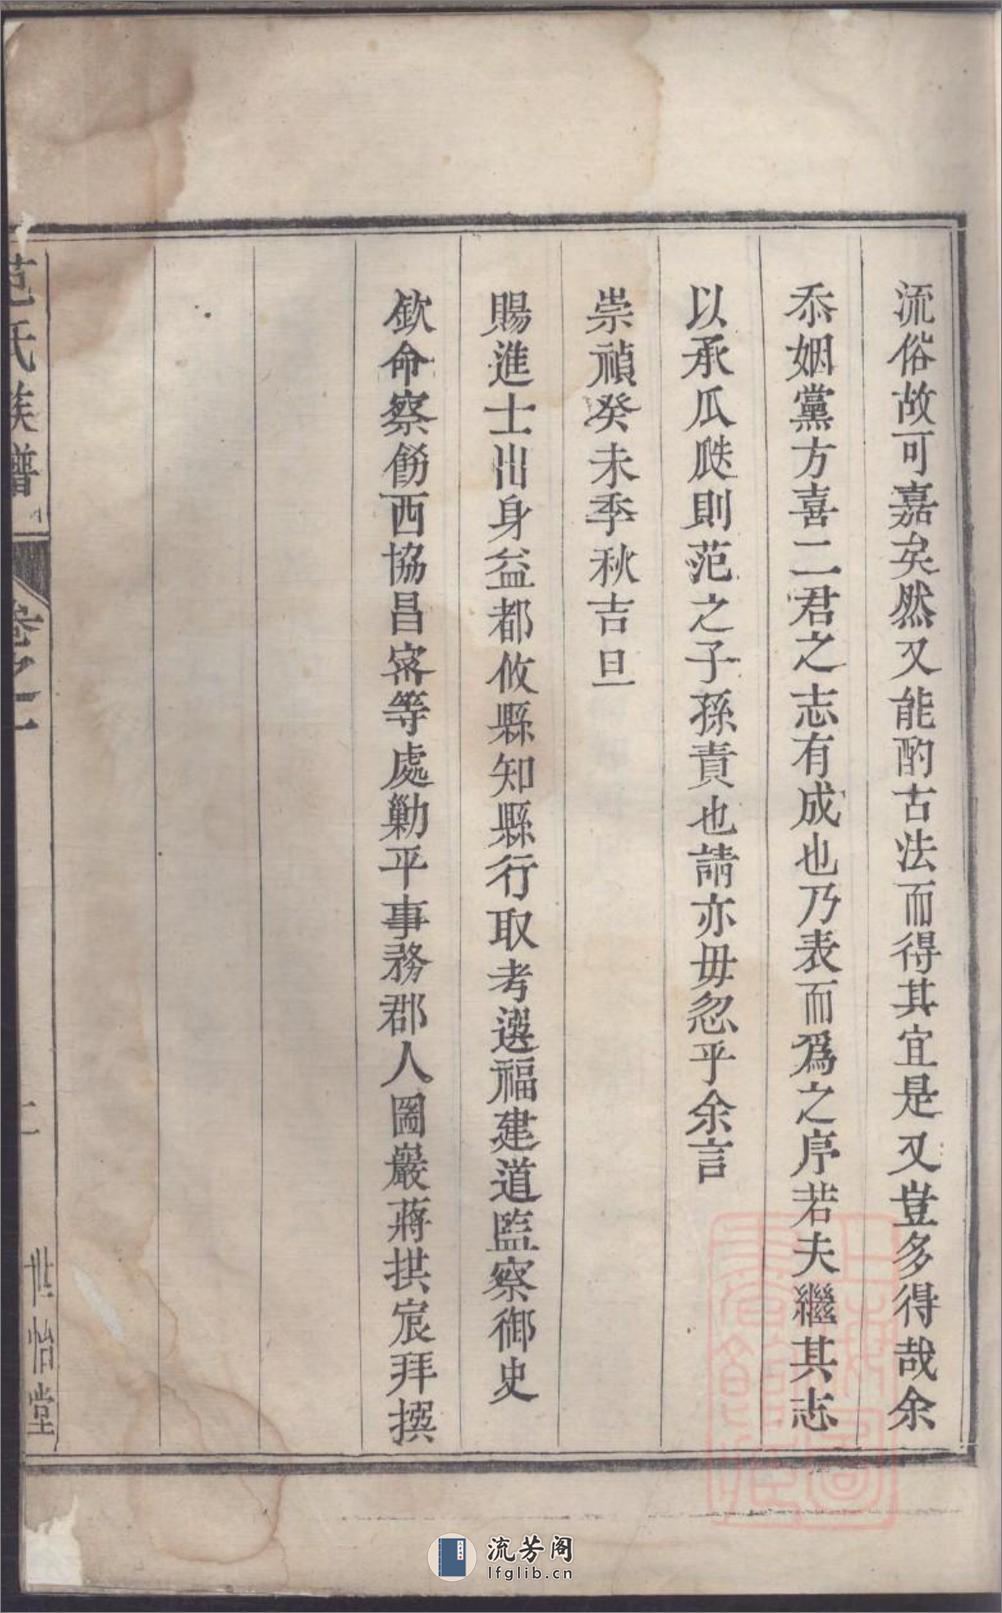 流俗故可嘉矣然又能酌古法而得其宜是又豈多得哉余
忝姻黨方喜二君之志有成也乃表而爲之序若夫繼其志
以承瓜瓞則范之子孫責也請亦毋忽乎余言
崇禎癸未季秋吉旦
賜進士出身益都攸縣知縣行取考選福建道監察御史
欽命察餉西協昌密等處勦平事務郡人圖巖蔣拱宸拜撰
范氏族譜
卷之一
二
世怡堂
上海圖書館藏
流芳阁
lfglib.cn